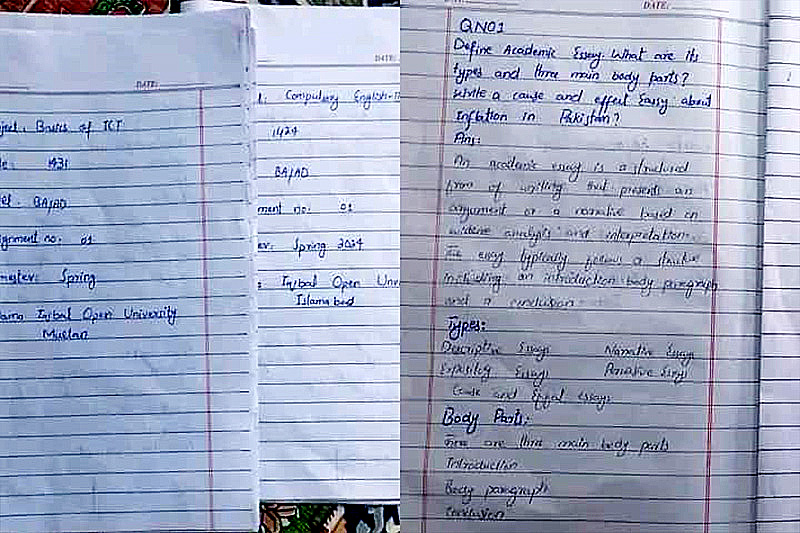 DATE:
ject: Basics of ICT
le: 1431
el: BA/AD
ignment no: 01
mester: Spring
lama Iqbal Open University
Multan
DATE:
t: Compulsory English-I
1424
BA/AD
ment no: 01
er: Spring 2024
: Iqbal Open Unv
Islamabad
DATE:
QN01
Define Academic Essay. What are its
types and three main body parts?
Write a cause and effect Eassy about
Inflation in Pakistan?
Ans:
An academic essay is a structured
form of writing that presents an
argument or a narrative based on
evidence analysis and interpretation.
The essay typically follows a structure
including an introduction body paragraph
and a conclusion
Types:
Descriptive Essays Narrative Essays
Expository Essays Persuasive Essays
Cause and Effect essays
Body Parts:
There are three main body parts
Introduction
Body paragraph
conclusion